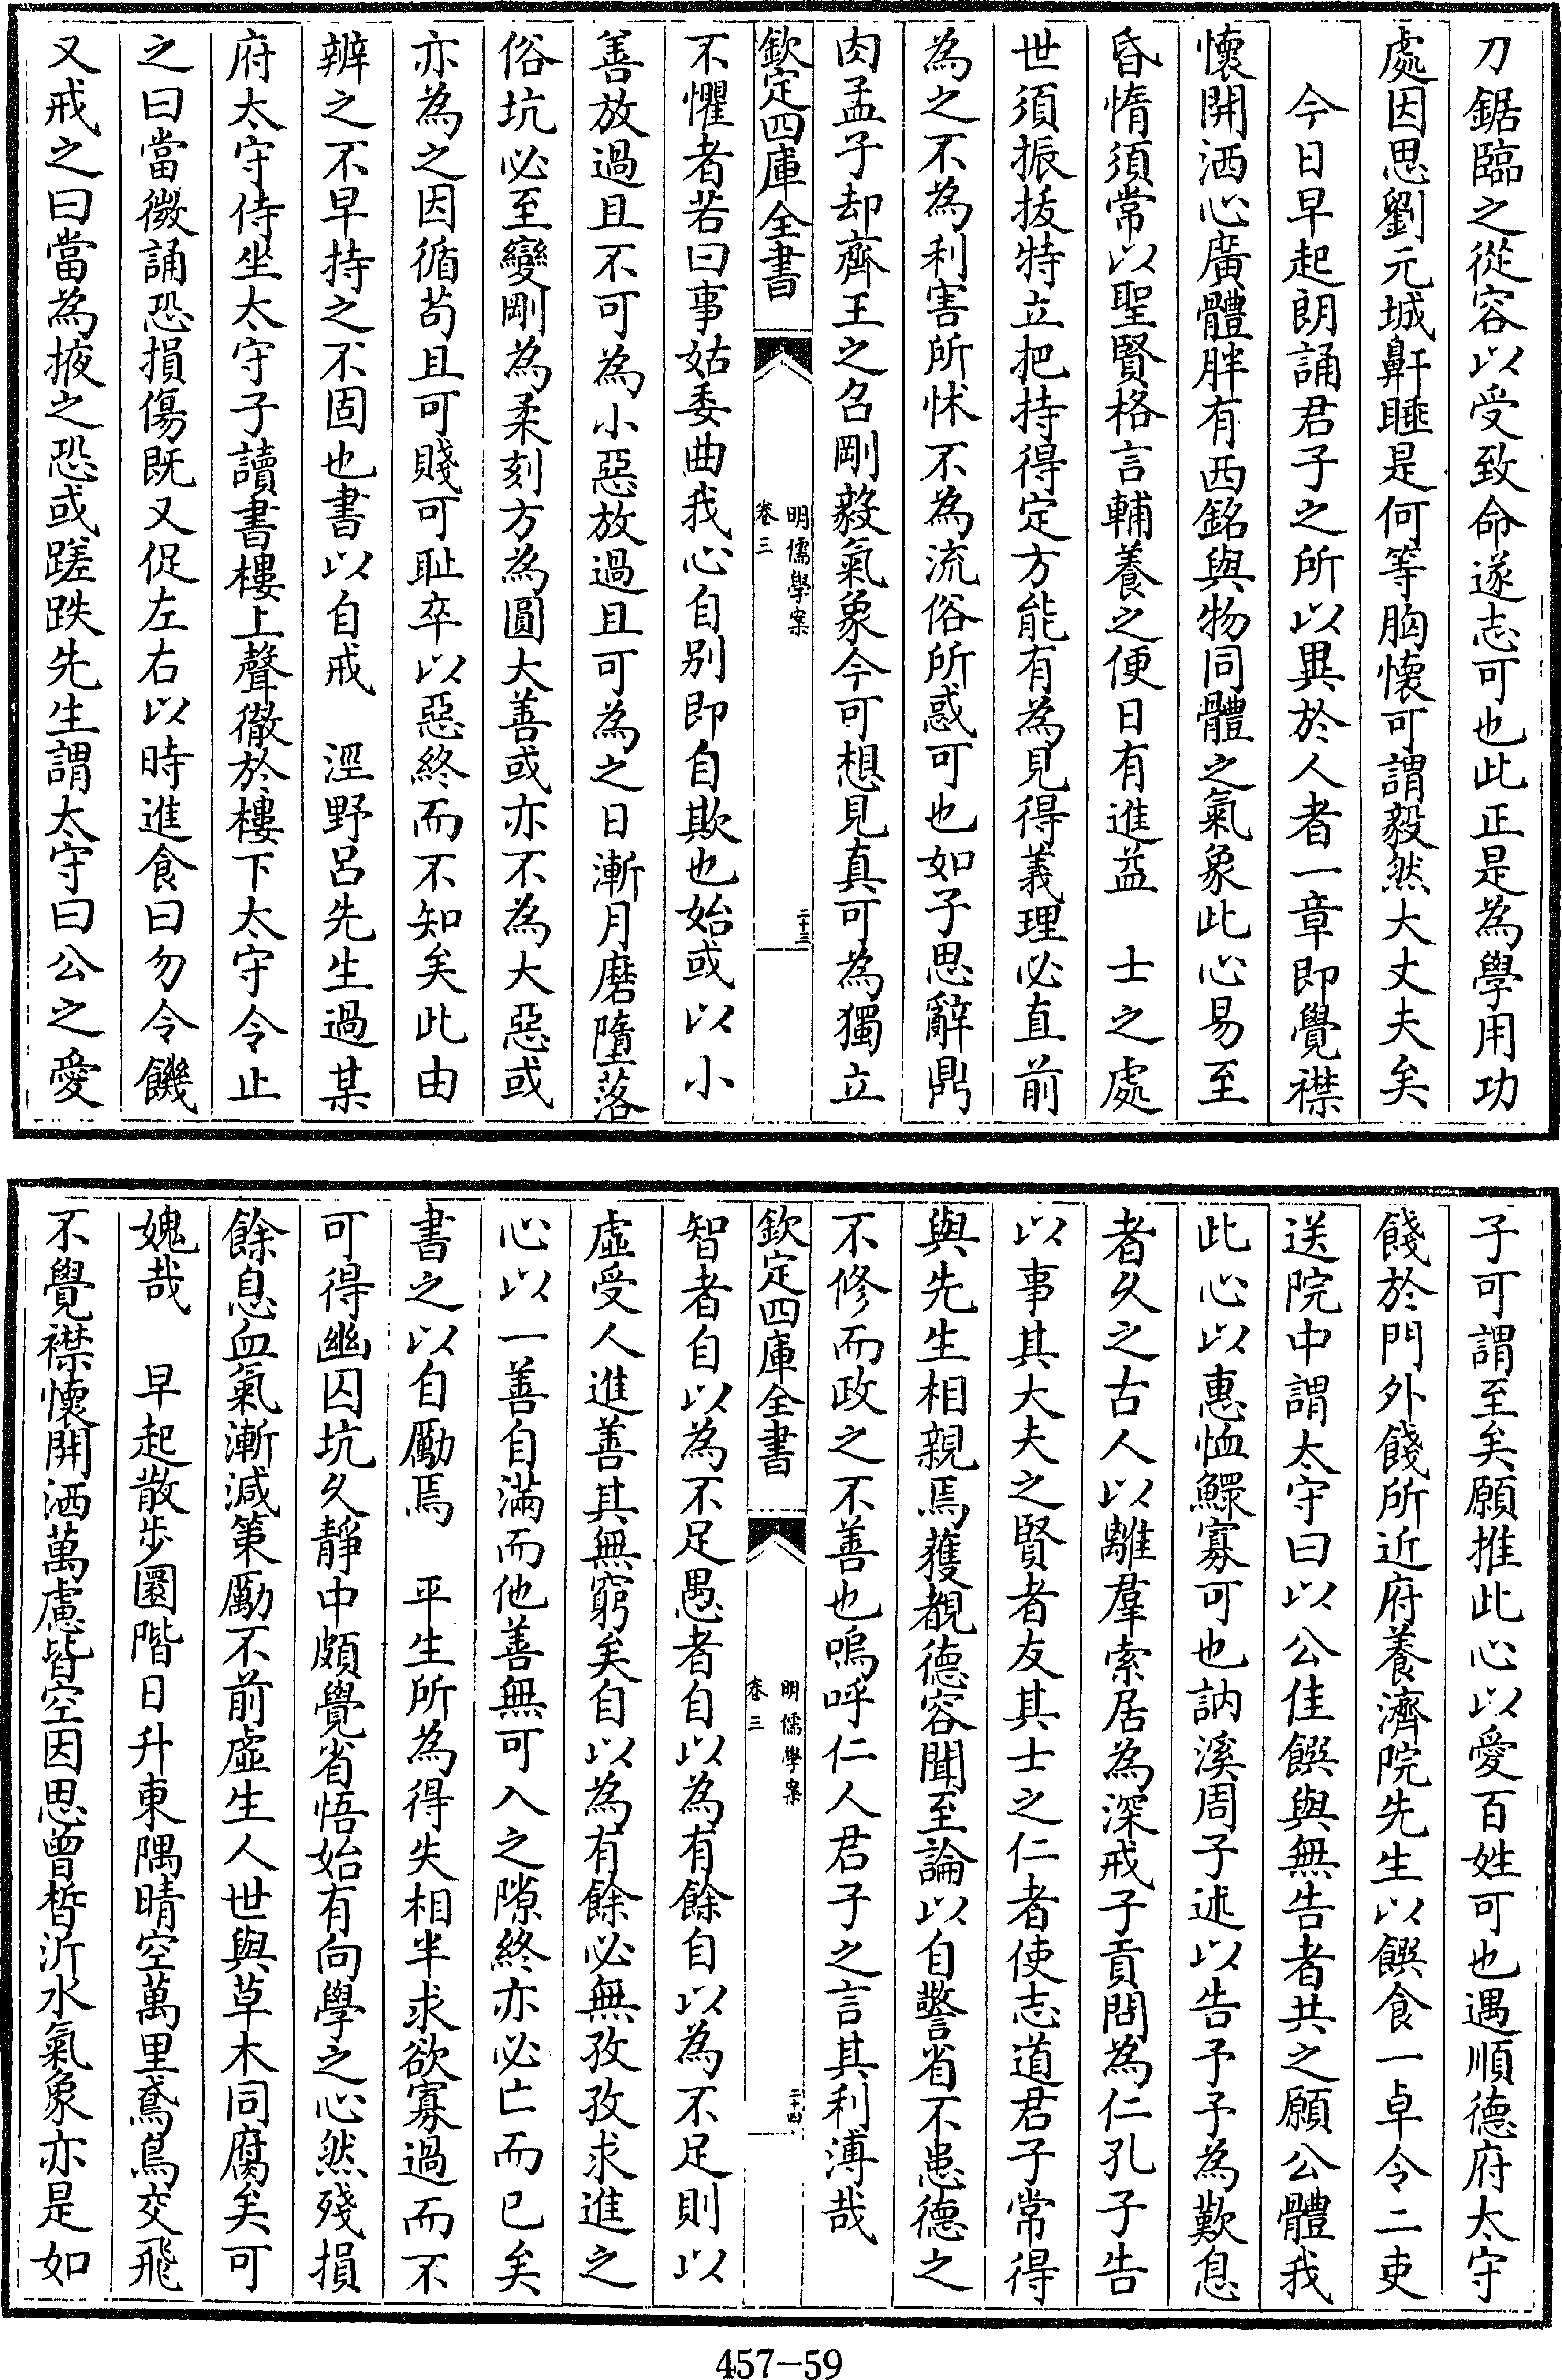 刀鋸臨之從容以受致命遂志可也此正是為學用功
處因思劉元城鼾睡是何等胸懷可謂毅然大丈夫矣
今日早起朗誦君子之所以異於人者一章即覺襟
懷開洒心廣體胖有西銘與物同體之氣象此心易至
昏惰須常以聖賢格言輔養之便日有進益　士之處
世須振拔特立把持得定方能有為見得義理必直前
為之不為利害所怵不為流俗所惑可也如子思辭鼎
肉孟子却齊王之召剛毅氣象今可想見真可為獨立
欽定四庫全書
明儒學案
卷三
二十三
不懼者若曰事姑委曲我心自别即自欺也始或以小
善放過且不可為小惡放過且可為之日漸月磨墮落
俗坑必至變剛為柔刻方為圓大善或亦不為大惡或
亦為之因循苟且可賤可耻卒以惡終而不知矣此由
辨之不早持之不固也書以自戒　涇野呂先生過某
府太守侍坐太守子讀書樓上聲徹於樓下太守令止
之曰當微誦恐損傷既又促左右以時進食曰勿令饑
又戒之曰當為掖之恐或蹉跌先生謂太守曰公之愛
子可謂至矣願推此心以愛百姓可也遇順德府太守
餞於門外餞所近府養濟院先生以饌食一卓令二吏
送院中謂太守曰以公佳饌與無告者共之願公體我
此心以惠恤鰥寡可也訥溪周子述以告予予為歎息
者久之古人以離羣索居為深戒子貢問為仁孔子告
以事其大夫之賢者友其士之仁者使志道君子常得
與先生相親焉獲覩德容聞至論以自警省不患德之
不修而政之不善也嗚呼仁人君子之言其利溥哉
欽定四庫全書
明儒學案
卷三
二十四
智者自以為不足愚者自以為有餘自以為不足則以
虛受人進善其無窮矣自以為有餘必無孜孜求進之
心以一善自滿而他善無可入之隙終亦必亡而已矣
書之以自勵焉　平生所為得失相半求欲寡過而不
可得幽囚坑久靜中頗覺省悟始有向學之心然殘損
餘息血氣漸減策勵不前虛生人世與草木同腐矣可
媿哉　早起散步圜階日升東隅晴空萬里鳶鳥交飛
不覺襟懷開洒萬慮皆空因思曾晳沂水氣象亦是如
457-59